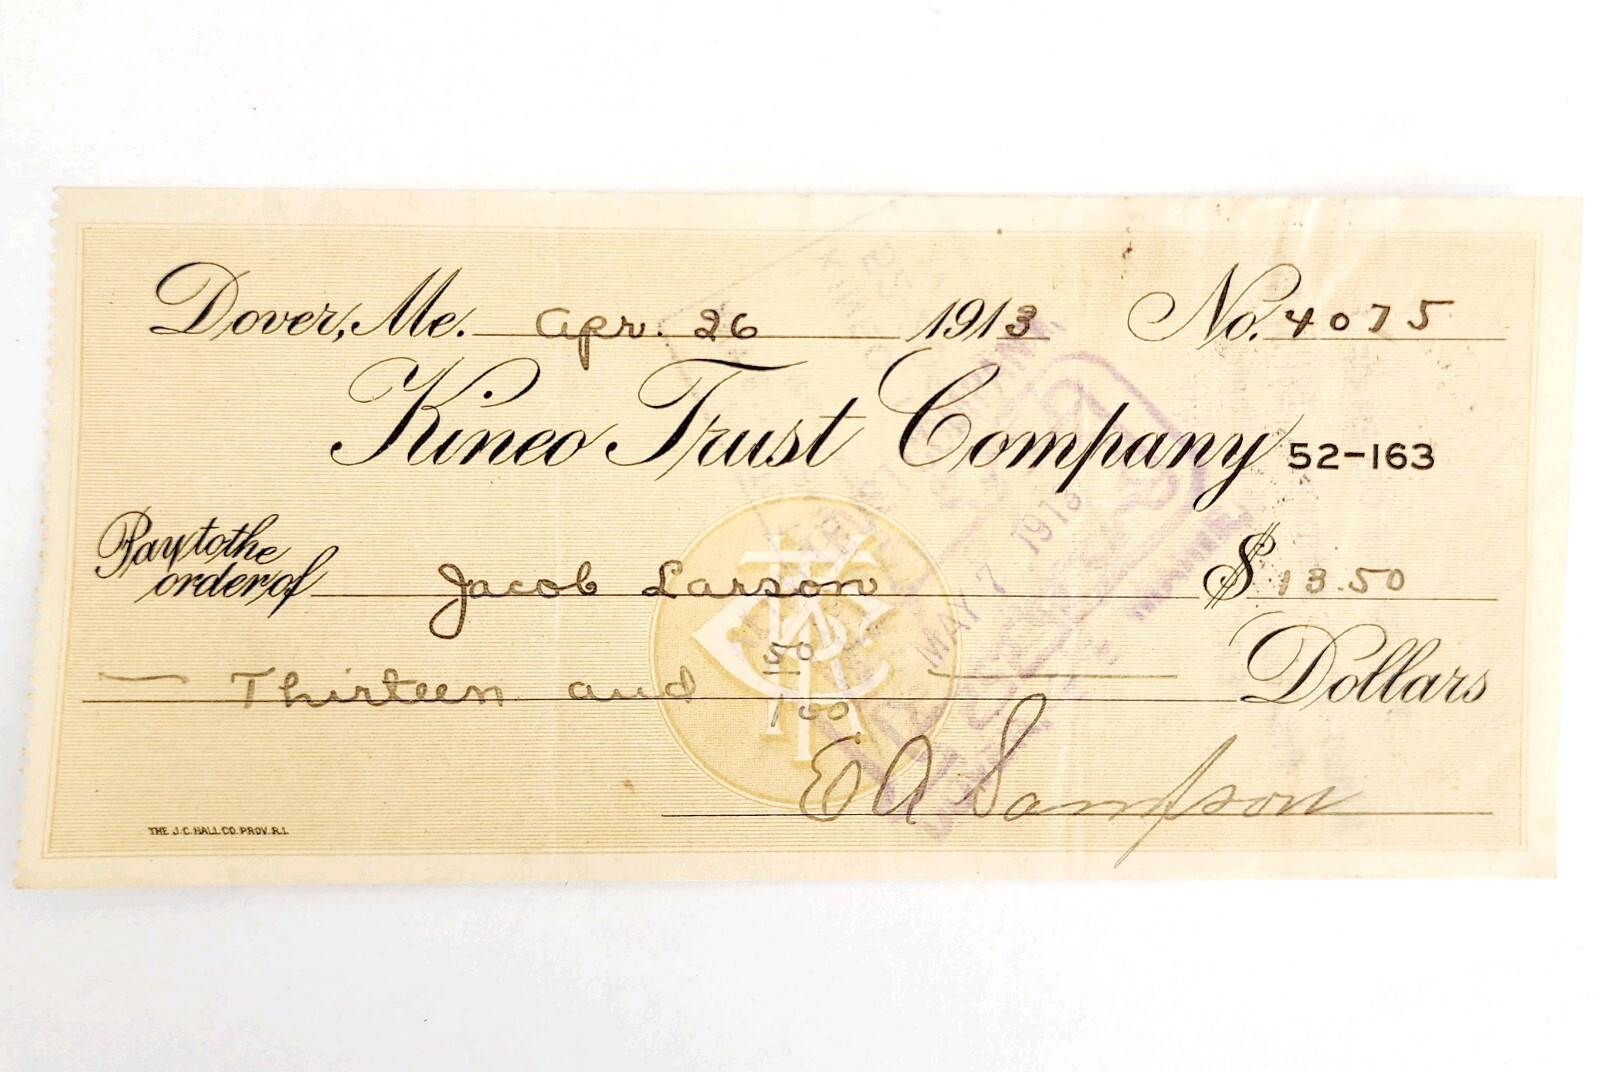 Dover, Me. Apr. 26 1913 No. 4075
Kineo Trust Company 52-163
Pay to the order of Jacob Larson $ 13.50
Thirteen and 50/100 Dollars
E A Sampson
THE J.C. HALL CO. PROV. R.I.
MAY 7 1913